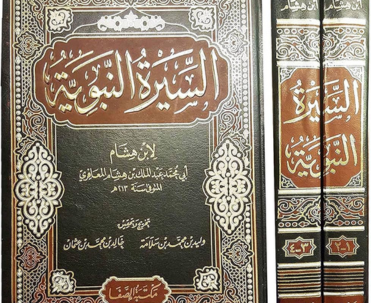 السيرة النبوية
لابن هشام
أبي محمد عبد الملك بن هشام المعافري
المتوفى سنة ٢١٣ هـ
تخريج وتحقيق
وليد بن محمد بن سلامة
خالد بن محمد بن عثمان
مكتبة الصفا
ابن هشام
السيرة
النبوية
٣-٤
ابن هشام
١-٢